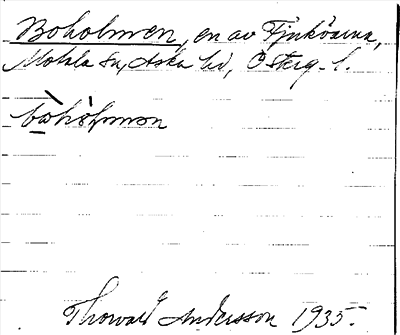 Boholmen, en av Fjuköarna,
Motala sn, Aska hd, Österg. l.
bò̲hò̀lmən
Thorvald Andersson 1935.